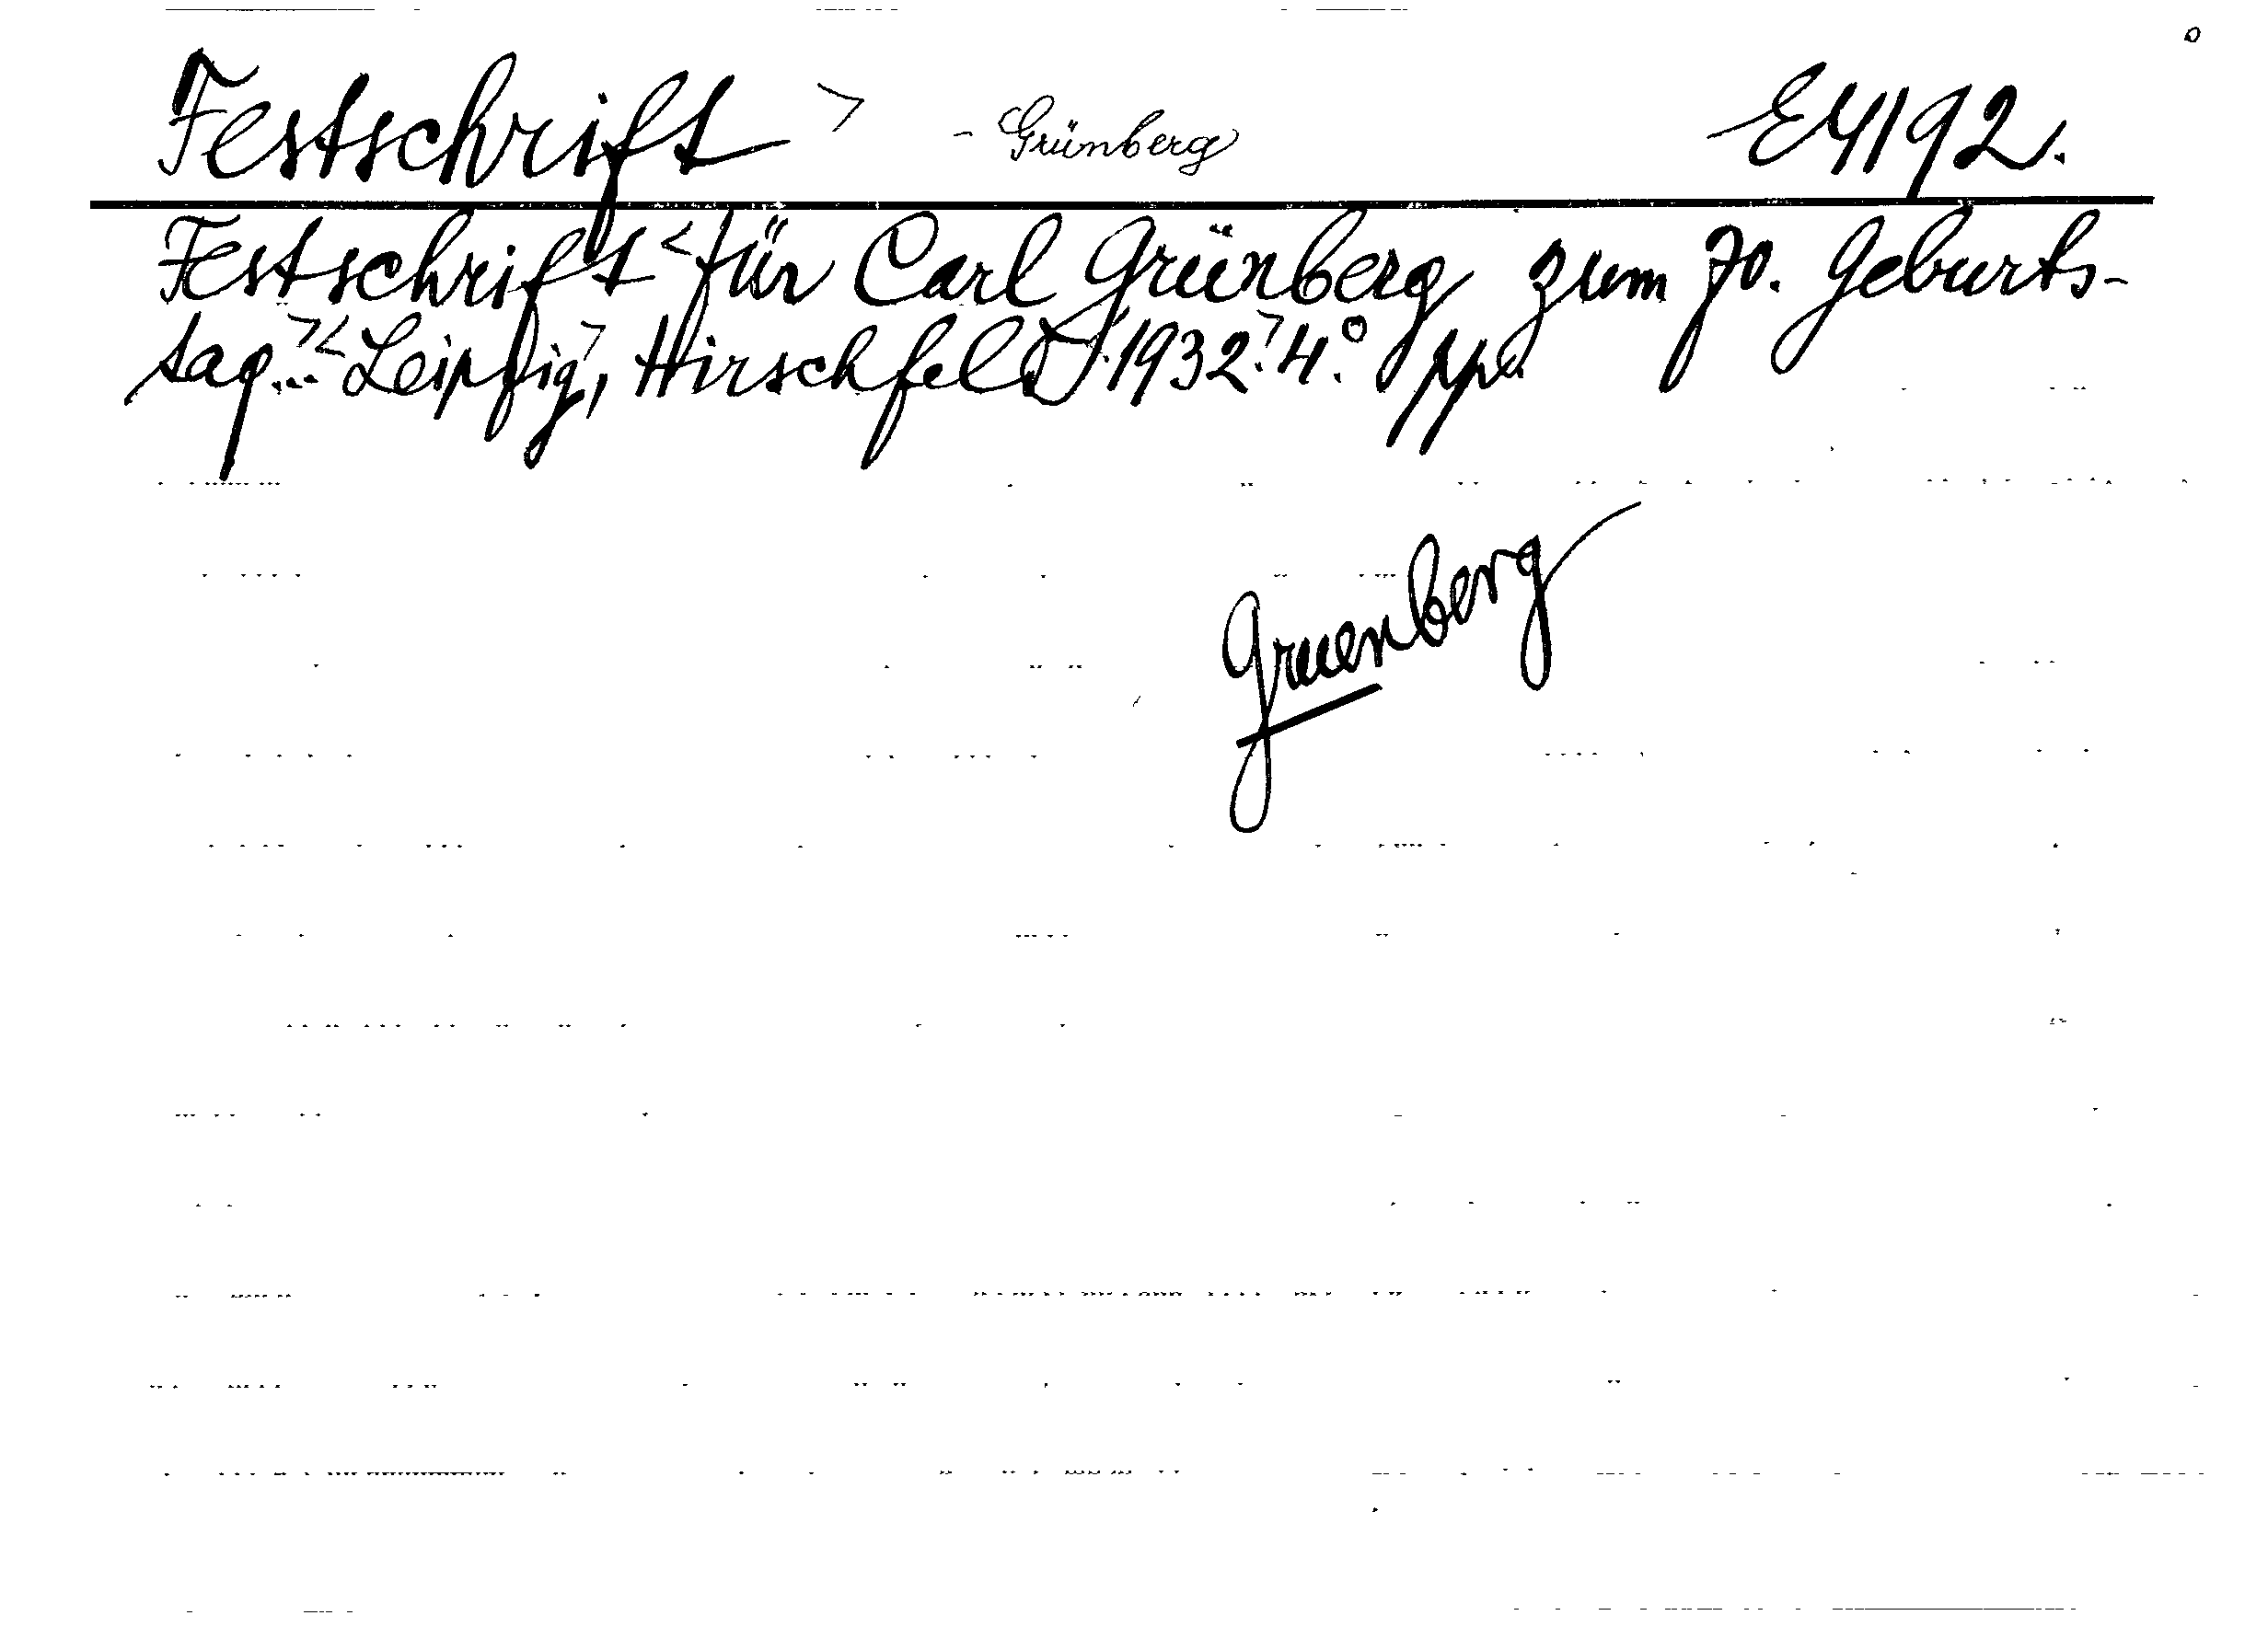 Festschrift > - Grünberg E4192.
Festschrift < für Carl Grünberg zum 70. Geburts-
tag...>< Leipzig>, Hirschfeld 1932.> 4.° ppd.
Gruenberg